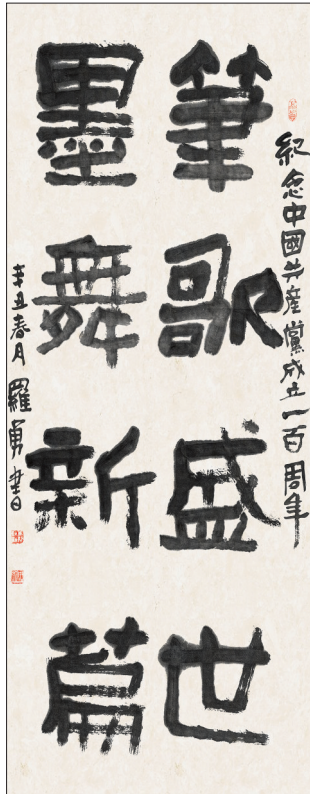 紀念中國共產黨成立一百周年
筆歌盛世
墨舞新篇
辛丑春月羅勇書